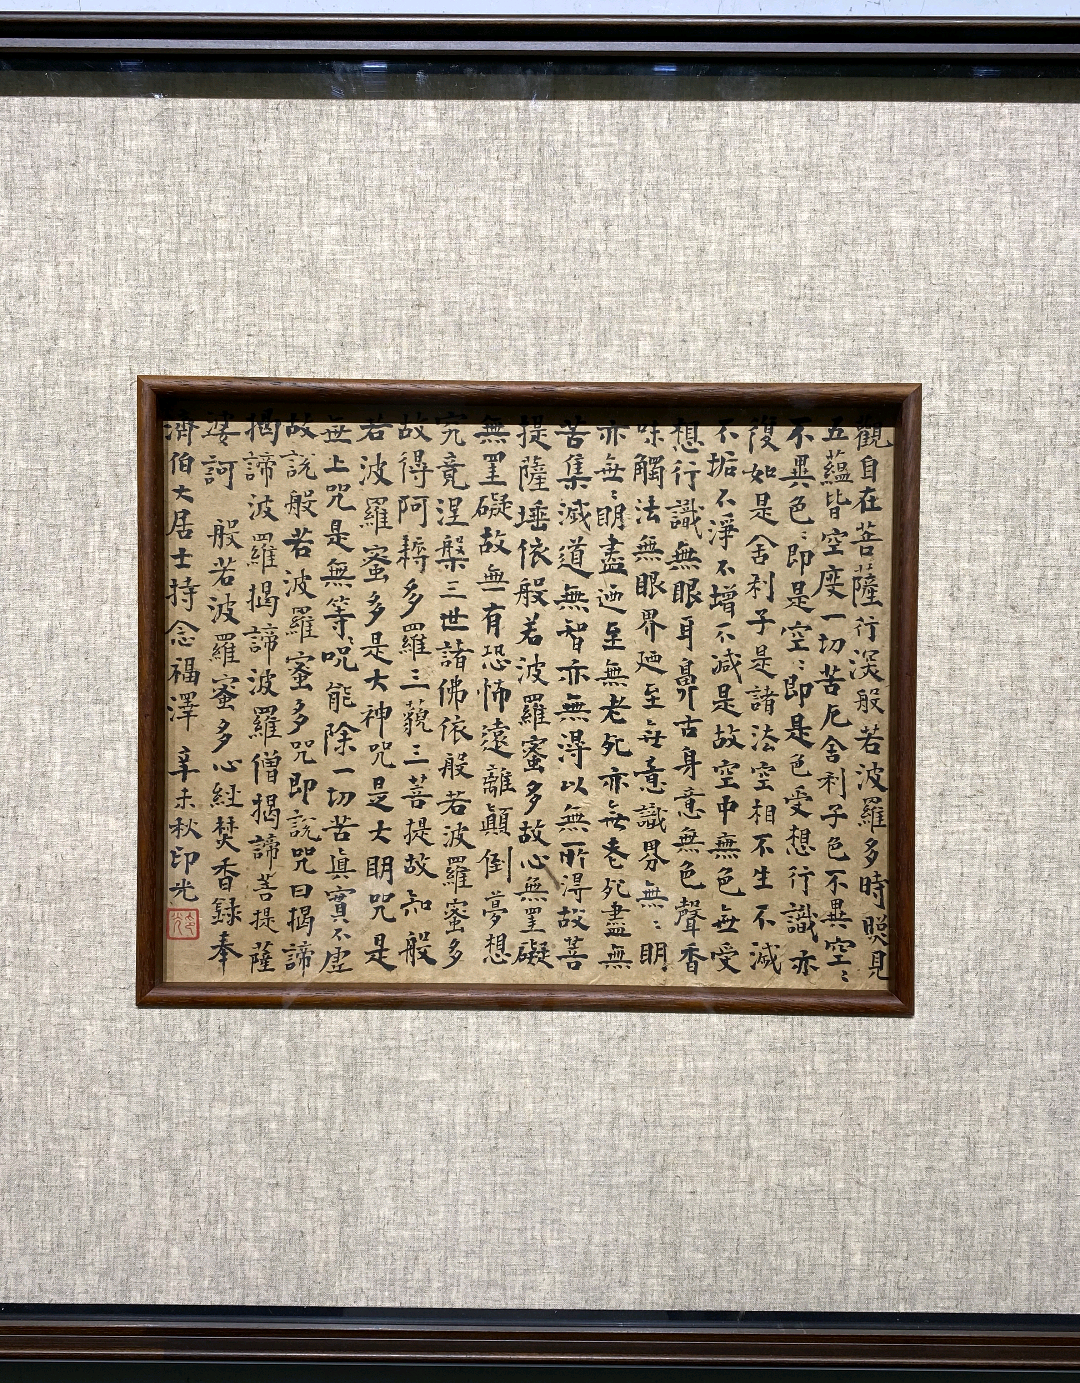 觀自在菩薩行深般若波羅多時照見
五蘊皆空度一切苦厄舍利子色不異空〻
不異色〻即是空〻即是色受想行識亦
復如是舍利子是諸法空相不生不滅
不垢不淨不增不減是故空中無色無受
想行識無眼耳鼻舌身意無色聲香
味觸法無眼界廼至無意識界無〻明
亦無〻明盡廼至無老死亦無老死盡無
苦集滅道無智亦無得以無所得故菩
提薩埵依般若波羅蜜多故心無罣礙
無罣礙故無有恐怖遠離顛倒夢想
究竟涅槃三世諸佛依般若波羅蜜多
故得阿耨多羅三藐三菩提故知般
若波羅蜜多是大神咒是大明咒是
無上咒是無等咒能除一切苦真實不虛
故說般若波羅蜜多咒即說咒曰揭諦
揭諦波羅揭諦波羅僧揭諦菩提薩
婆訶 般若波羅蜜多心經焚香録奉
濟伯大居士持念福澤 辛未秋印光